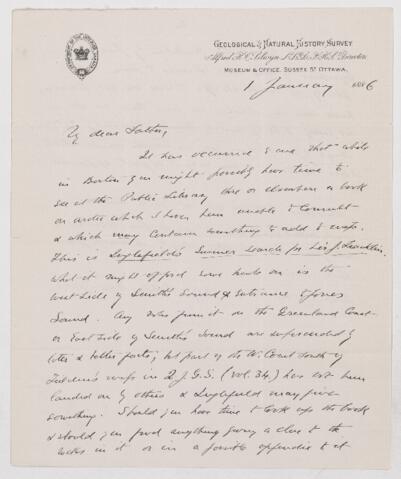 GEOLOGICAL & NATURAL HISTORY SURVEY
Alfred R. C. Selwyn, L.L.D. F.R.S. Director
MUSEUM & OFFICE, SUSSEX ST OTTAWA.
1 January 1886
My dear Father,
It has occurred to me that while
in Boston you might possibly have time to
see at the Public Library there or elsewhere a book
on arctic which I have been unable to consult
& which may contain something to add to map.
This is Inglefield's Summer search for Sir J. Franklin.
What it might afford some hints on is the
West side of Smith's Sound & entrance to Jones
Sound. Any notes from it on the Greenland Coast
or East side of Smith's Sound are superseded by
later & better facts; but part of the W. Coast south of
Feilden's map in Q.J.G.S. (vol. 34.) has not been
landed on by others & Inglefield may give
something. Should you have time to look up the book
& should you find anything giving a clue to the
rocks in it or in a possible appendix to it